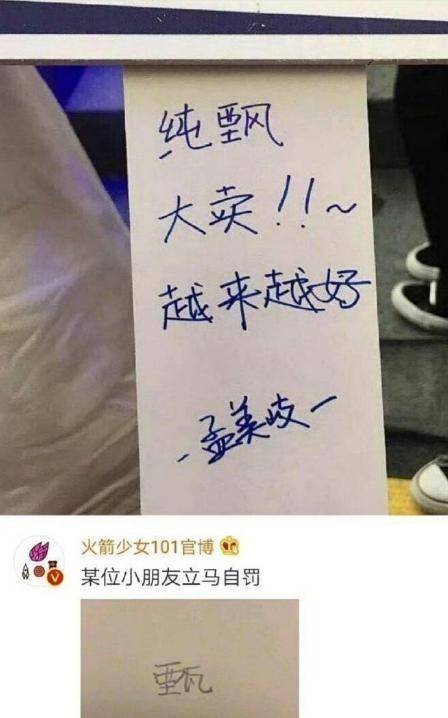 纯
大卖!!~
越来越好
孟美岐
火箭少女101官博
某位小朋友立马自罚
甄